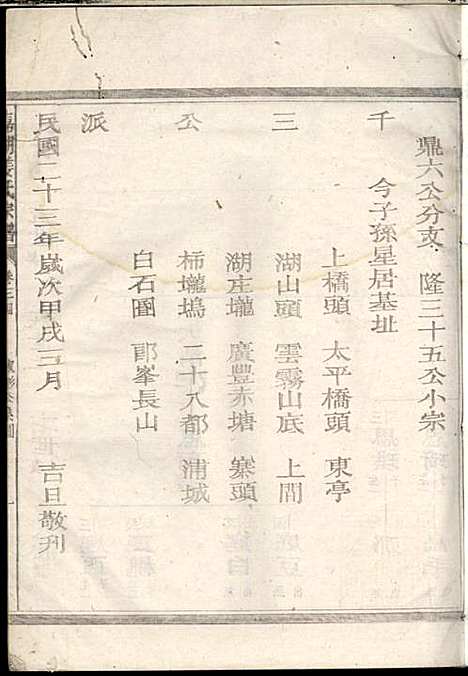 鼎六公分支 隆三十五公小宗
今子孫星居基址
千三公派
上橋頭 太平橋頭 東亭
湖山頭 雲霧山底 上間
湖庄壠 廣豐赤塘 寨頭
柿壠塢 二十八都 浦城
白石圍 郎峯長山
民國二十三年歲次甲戌三月 吉旦敬刊
姜氏宗譜